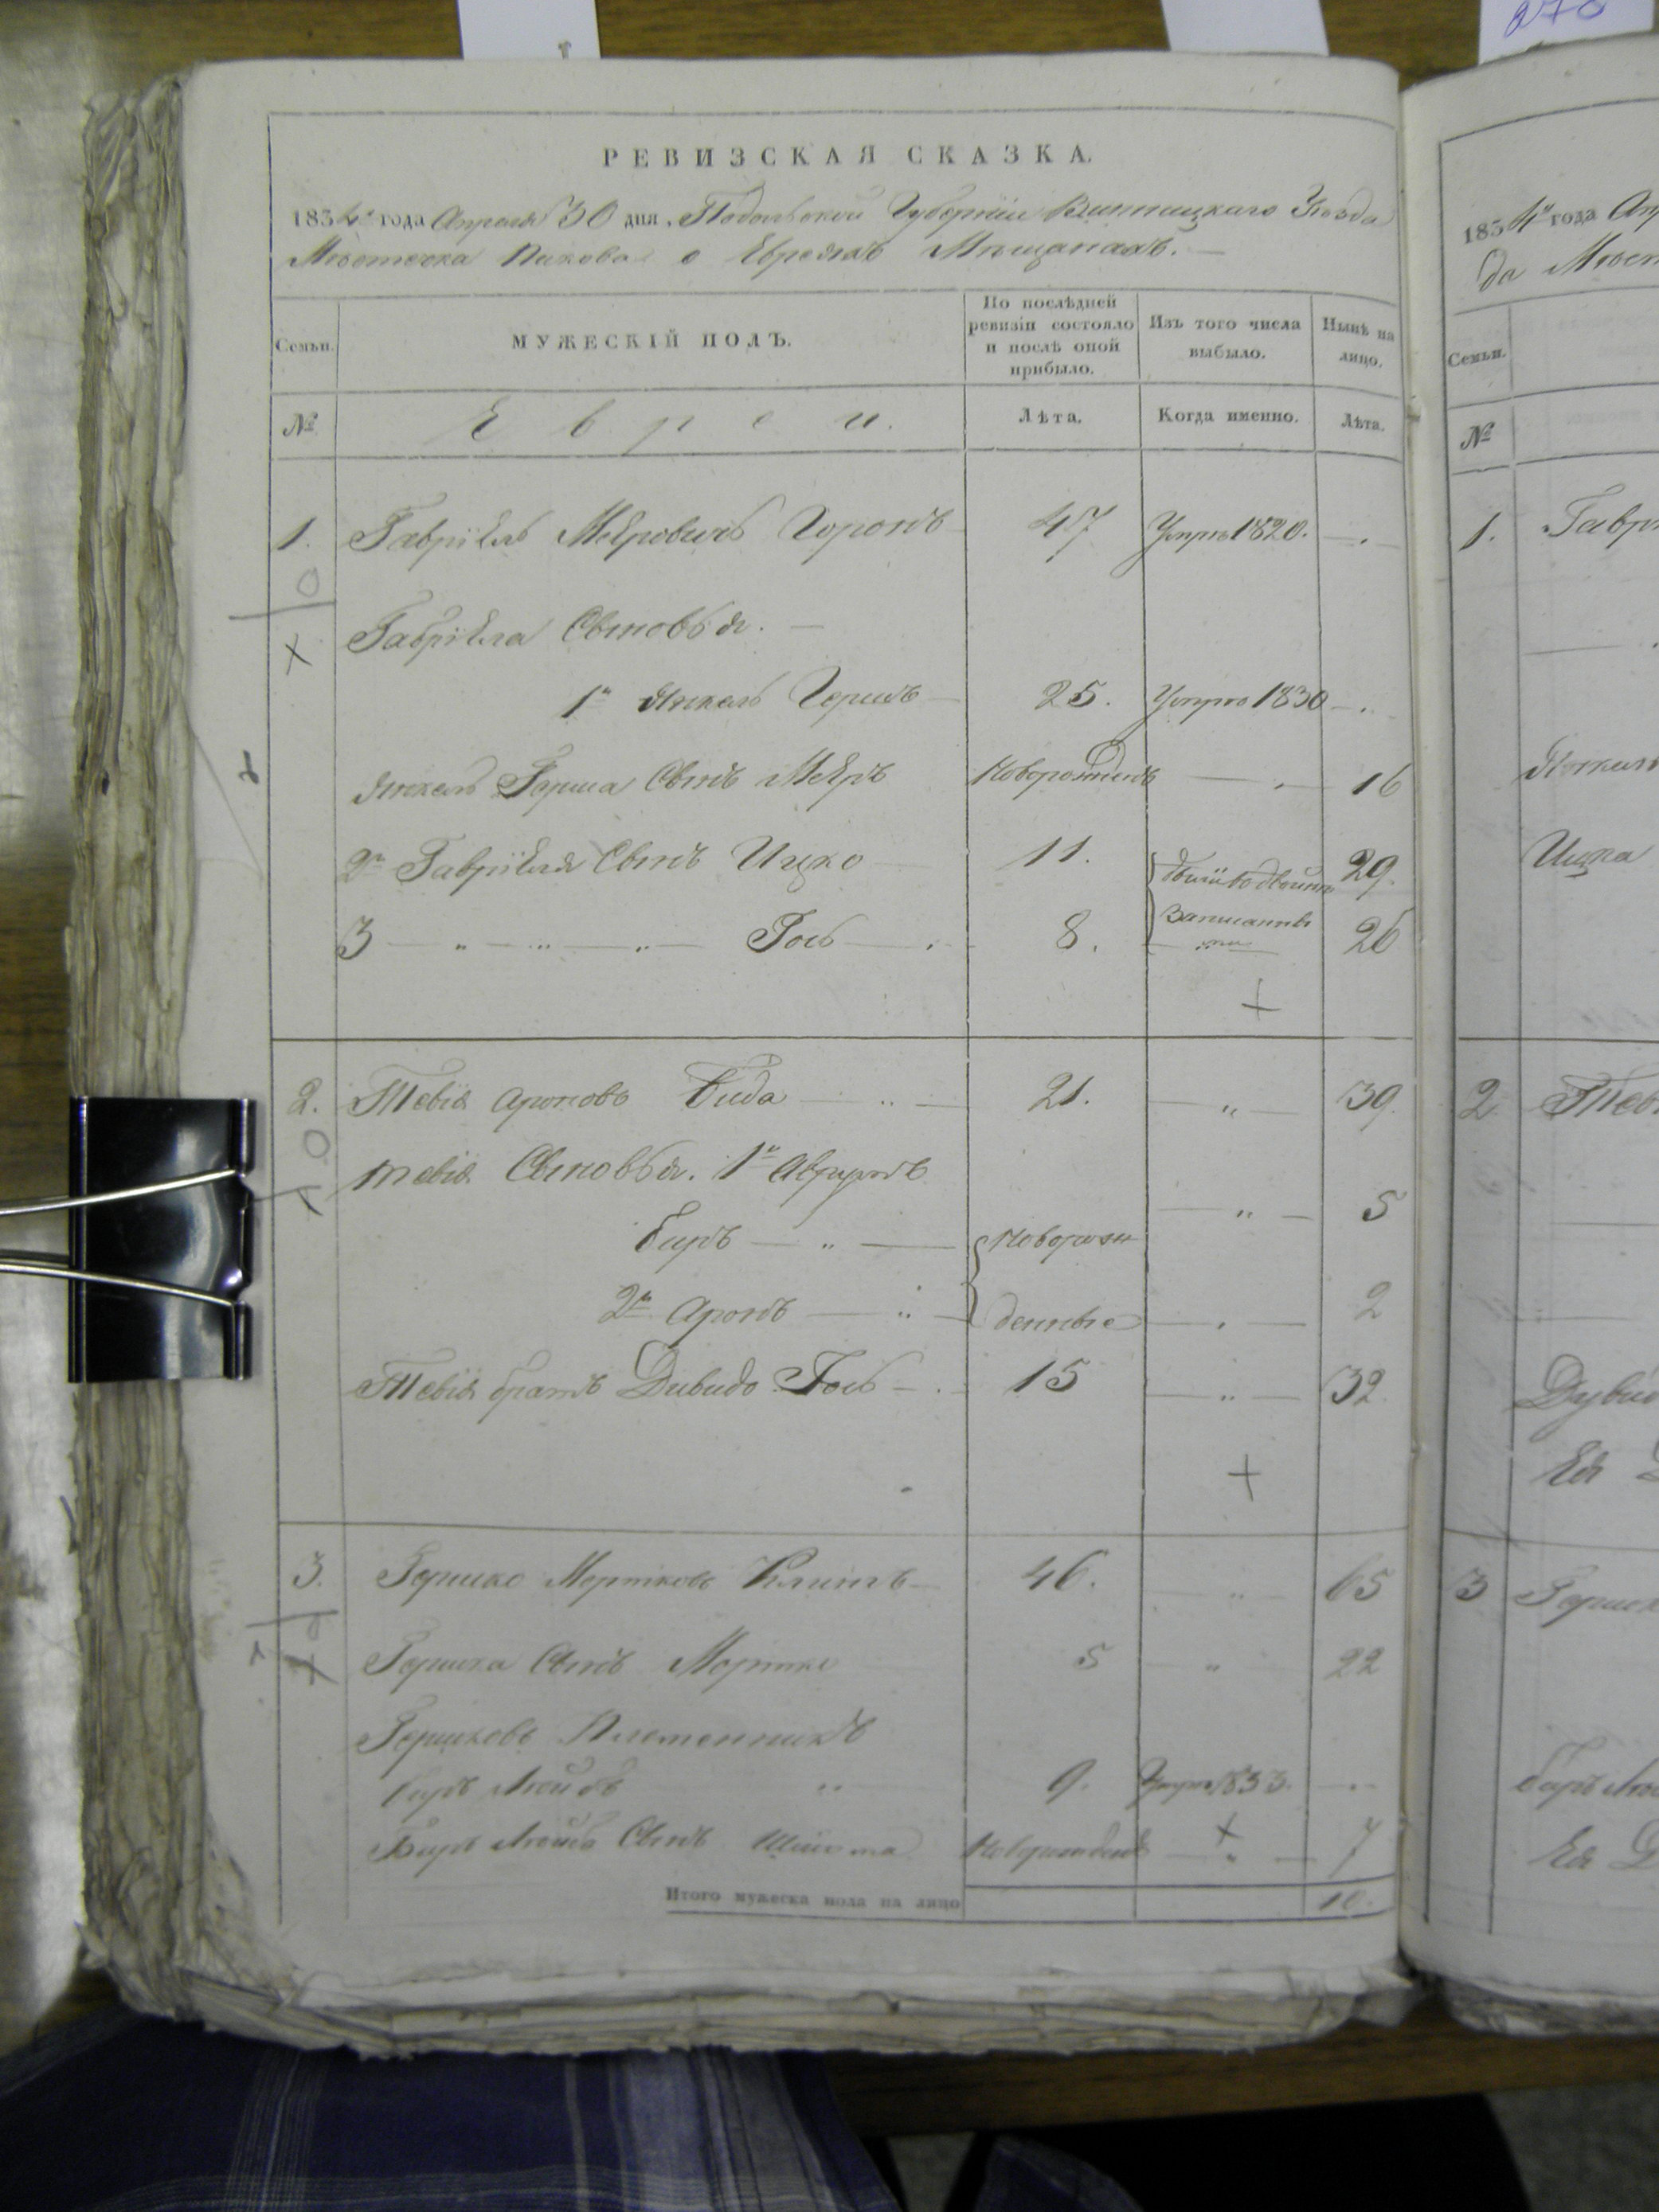 270
РЕВИЗСКАЯ СКАЗКА.
1834го года Апреля 30 дня. Подольской Губернїи Винницкаго Уѣзда
Мѣстечка Пикова о Евреяхъ Мѣщанахъ.
Семьи.
МУЖЕСКІЙ ПОЛЪ.
По послѣдней ревизіи состояло и послѣ оной прибыло.
Изъ того числа выбыло.
Нынѣ на лицо.
№
Евреи.
Лѣта.
Когда именно.
Лѣта.
1. Гаврїель Меѣровичъ 47 Умре 1820.
Габрїела Сыновья.
1й Янкель Гершъ 25. Умре 1830
Янкель Герша Сынъ Меѣръ Новорожденъ 16
2й Гаврїеля Сынъ Ицко 11. 29.
3 Гось 8. Записанны 26
2. Тевія Ароновъ 21. 39.
Тевія Сыновья. 1й Аврумъ
Беръ Новорож 5
2й Аронъ денные 2
Тевія братъ Дувидъ Гось 15 32
3. Гершко Мортковъ 46. 65
Гершка Сынъ Мортко 5 22
Гершковъ Племенникъ
Беръ Лейбъ 9. Умре 1833.
Беръ Лейба Сынъ Новорожденъ 7
Итого мужеска пола на лицо 10.
1834го года Ап
да Мѣст
Семьи.
№
1. Гавр
Янкеля
Ицка
2 Тев
Дувид
Ея Д
3 Гершк
Беръ Ле
Ея Д